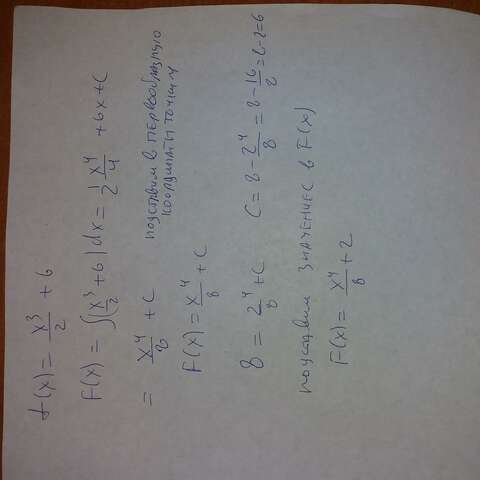 f(x) = x³/2 + 6
F(x) = ∫(x³/2 + 6)dx = 1/2 x⁴/4 + 6x + C
= x⁴/8 + C подставим в первообразную
координаты точки
F(x) = x⁴/8 + C
8 = 2⁴/8 + C C = 8 - 2⁴/8 = 8 - 16/8 = 8 - 2 = 6
подставим значение C в F(x)
F(x) = x⁴/8 + 2